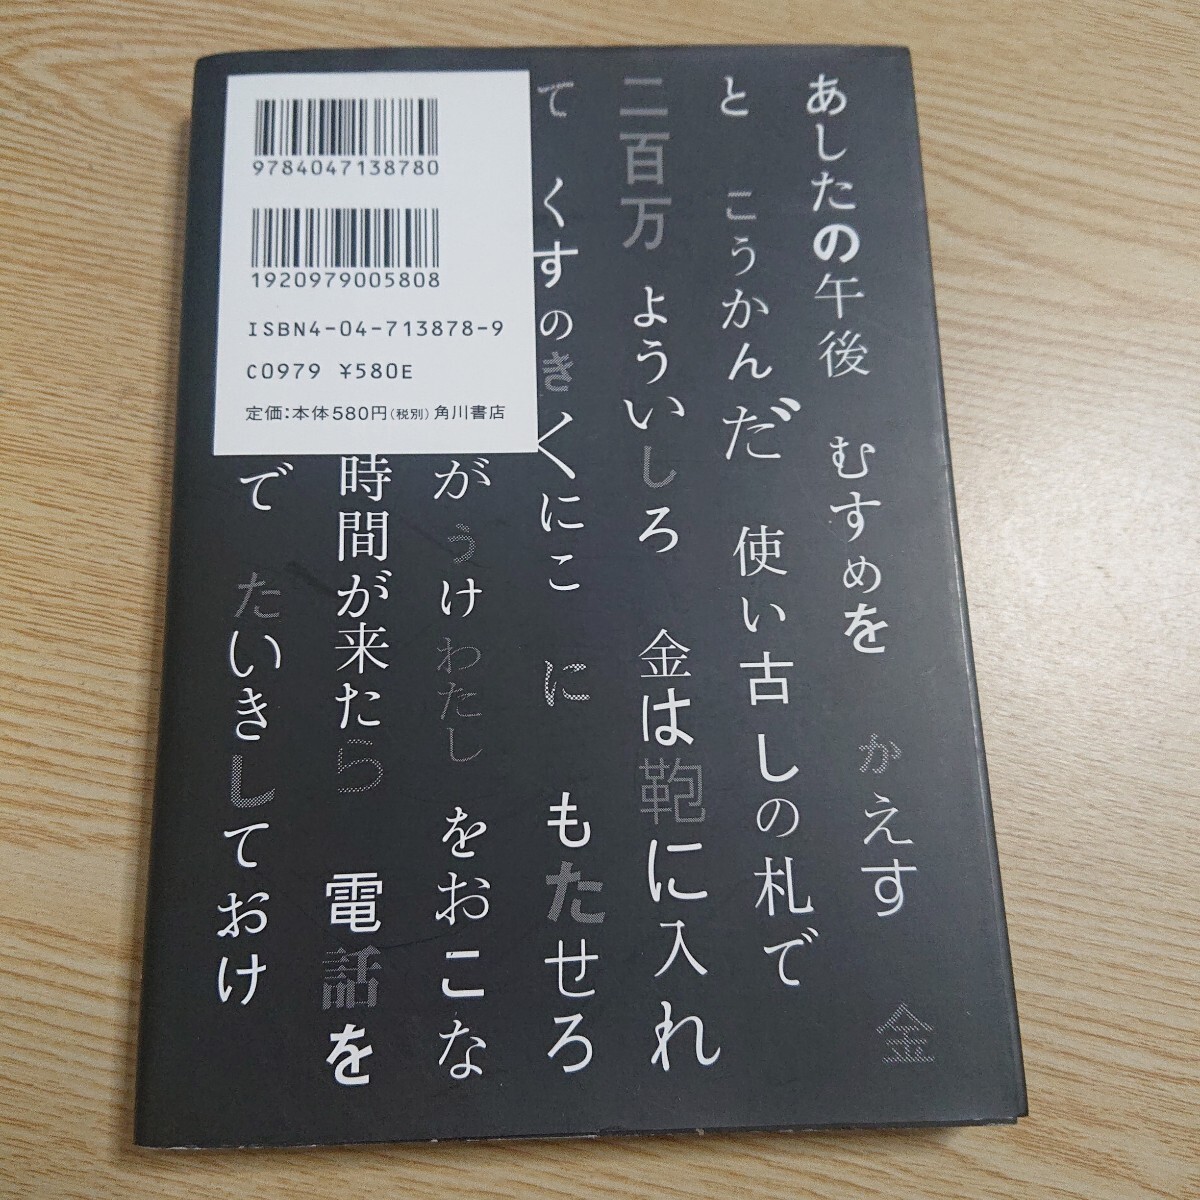 9784047138780
1920979005808
ISBN4-04-713878-9
C0979 ¥580E
定価:本体580円(税別)角川書店
あしたの午後 むすめを かえす 金
と こうかんだ 使い古しの札で
二百万 よういしろ 金は鞄に入れ
て くすのきくにこ に もたせろ
が うけわたし をおこな
時間が来たら 電話を
で たいきしておけ